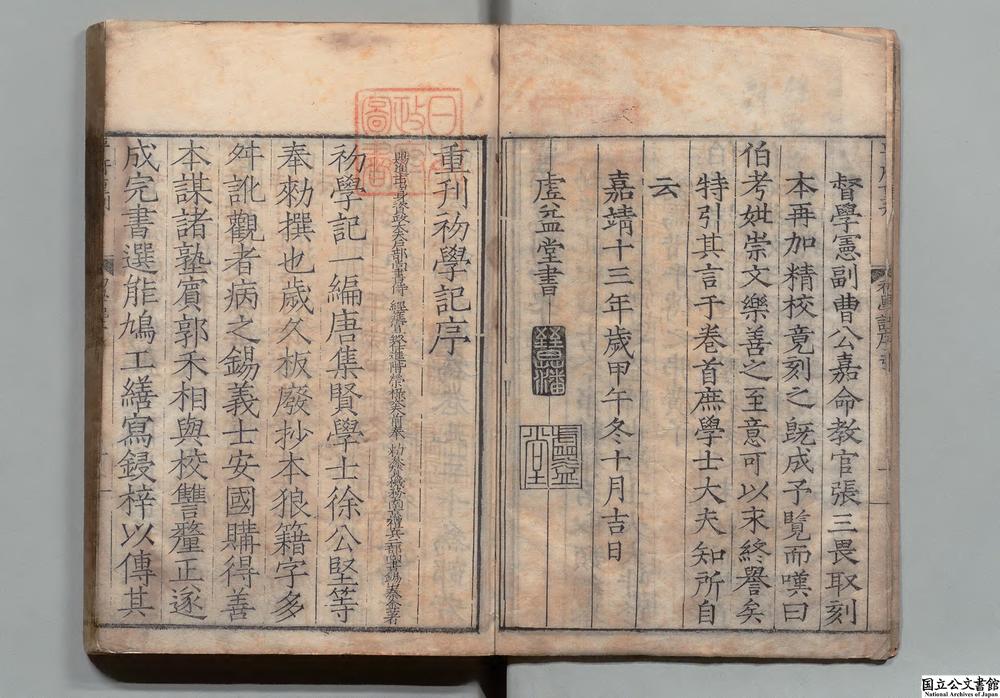 督學憲副曹公嘉命教官張三畏取刻
本再加精校竟刻之旣成予覽而嘆曰
伯考妣崇文樂善之至意可以求終譽矣
特引其言于卷首庶學士大夫知所自
云
嘉靖十三年歲甲午冬十月吉日
虛益堂書
重刊初學記序
初學記一編唐集賢學士徐公堅等
奉勑撰也歲久板廢抄本狼籍字多
舛訛觀者病之錫義士安國購得善
本謀諸塾賓郭禾相與校讐釐正遂
成完書選能鳩工繕寫鋟梓以傳其
国立公文書館
National Archives of Japan